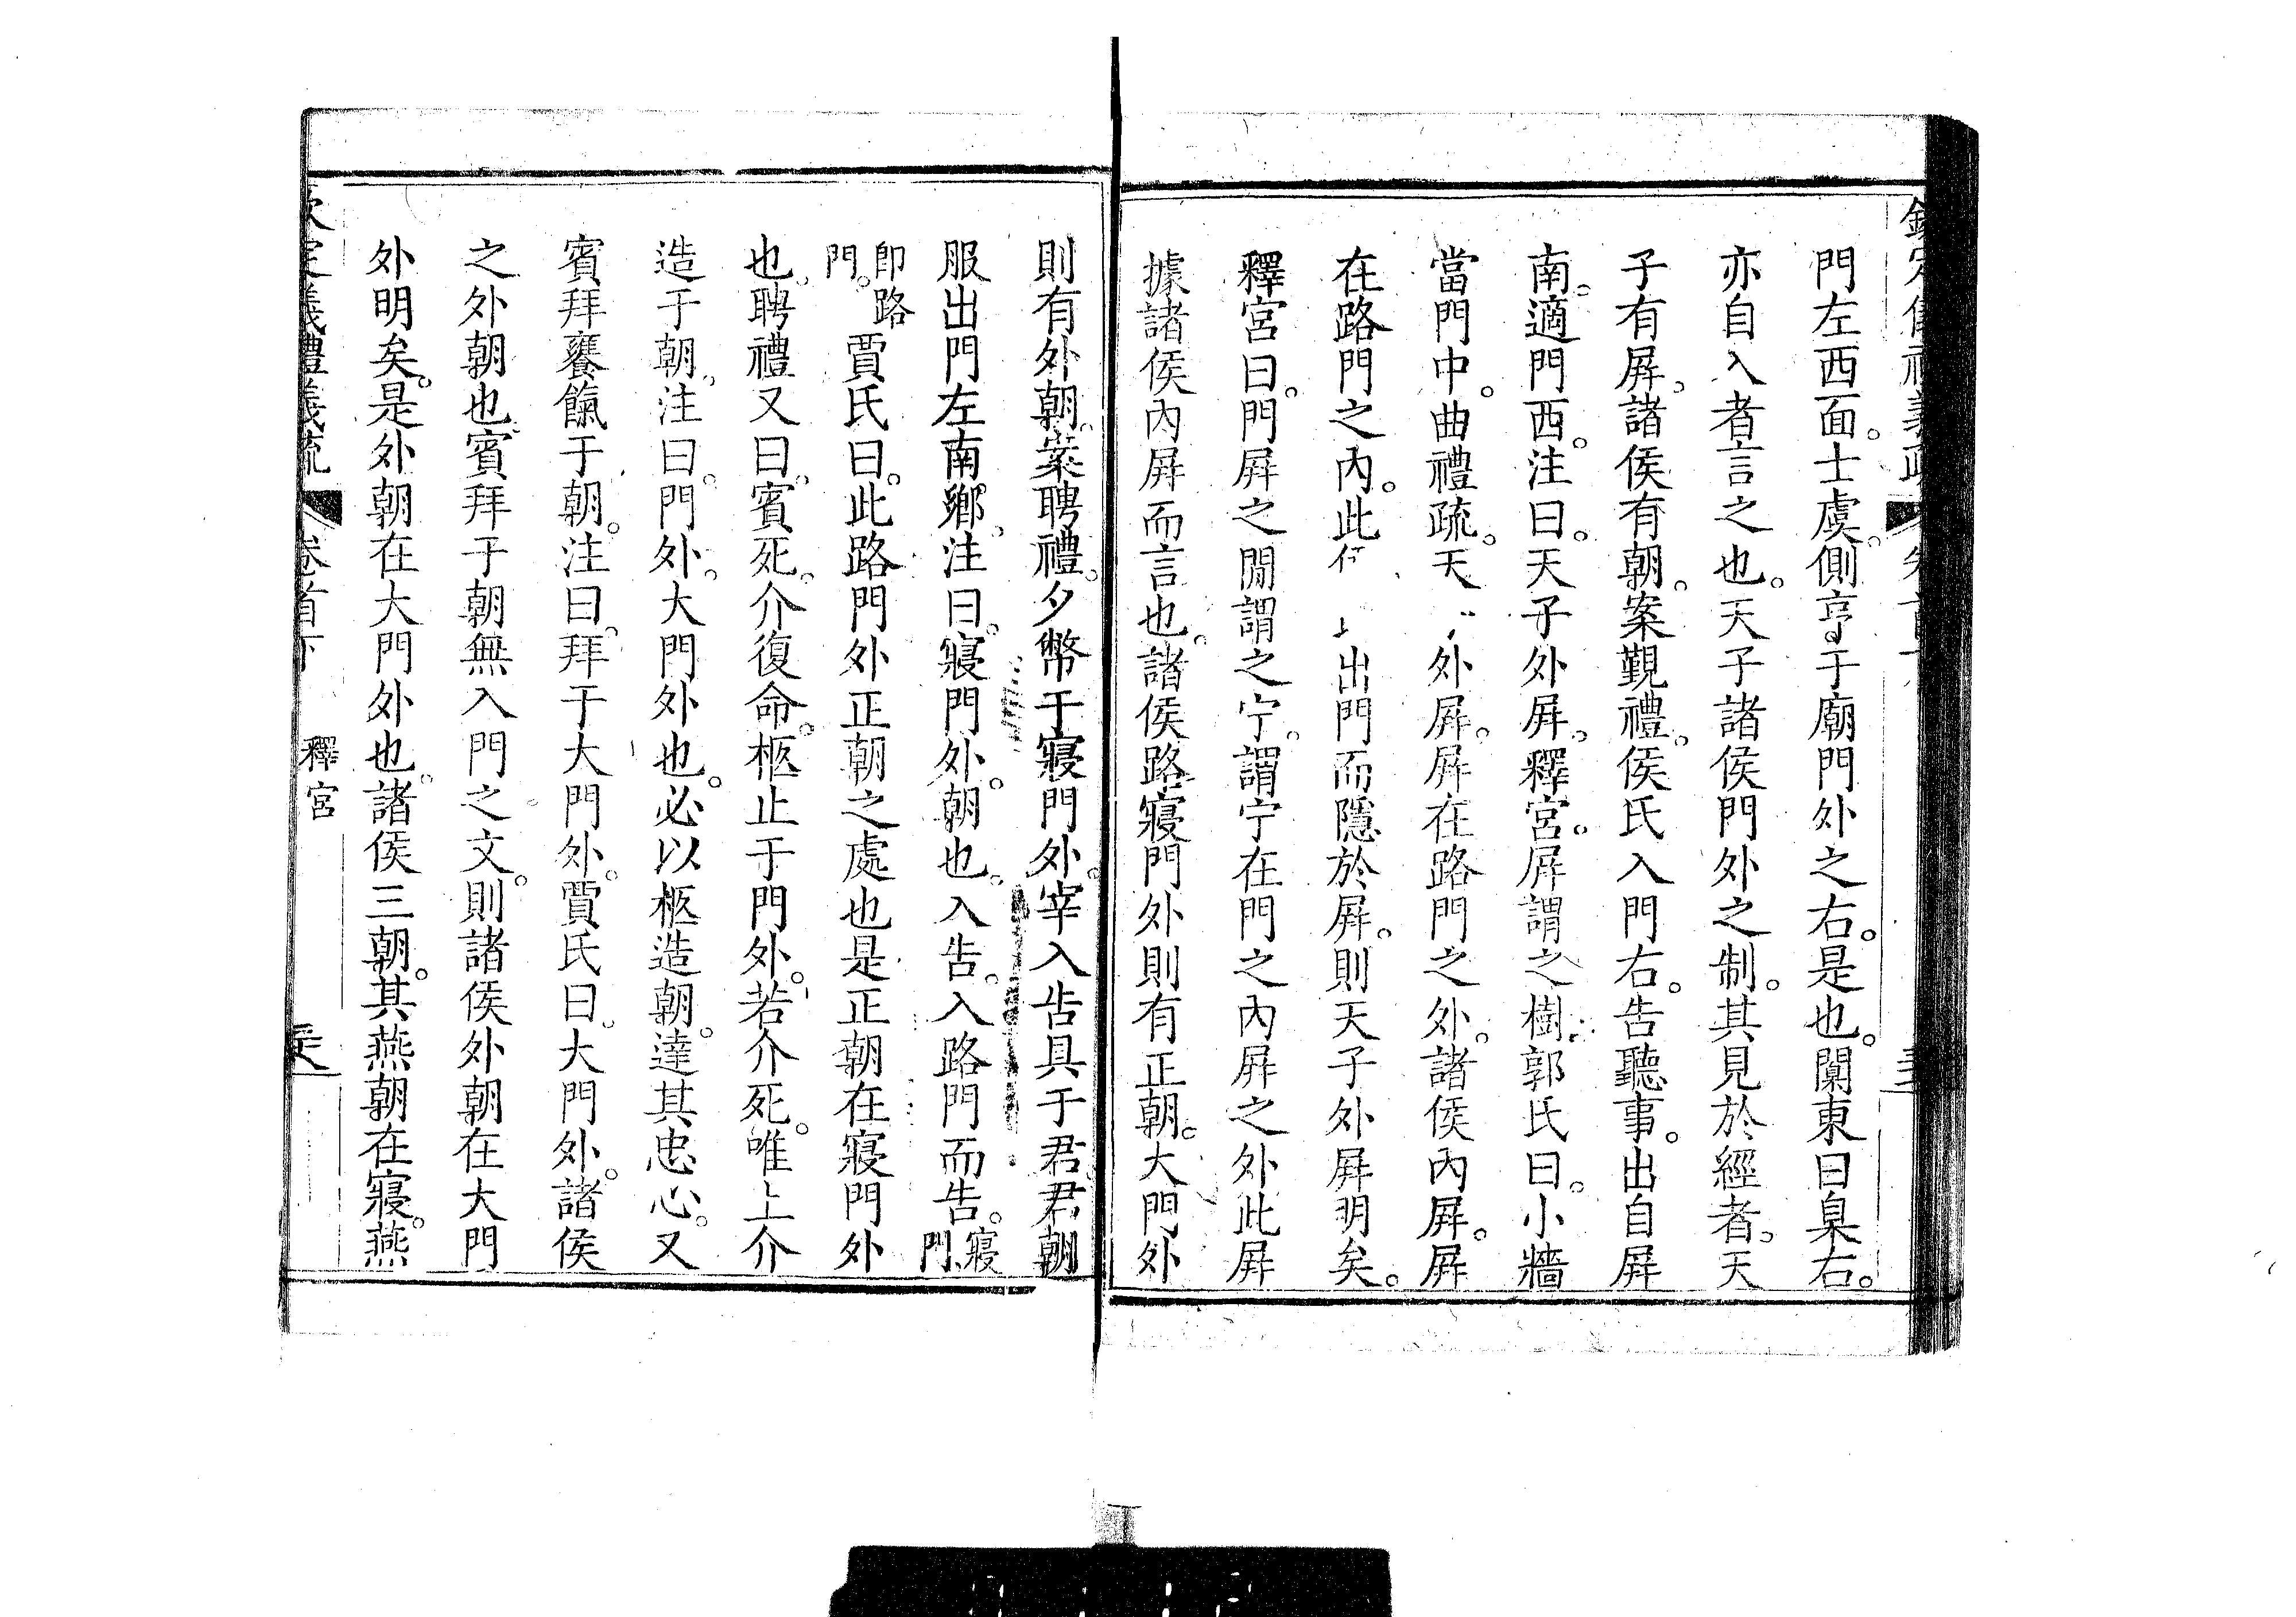 門左西面。士虞。側亨于廟門外之右。是也。闑東曰臬右。
亦自入者言之也。天子諸侯門外之制。其見於經者。天
子有屏。諸侯有朝。案覲禮。侯氏入門右。告聽事。出自屏
南。適門西。注曰。天子外屏。釋宮。屏謂之樹。郭氏曰。小牆
當門中。曲禮疏。天 外屏。屏在路門之外。諸侯內屏。屏
在路門之內。此 出門而隱於屏。則天子外屏明矣。
釋宮曰。門屏之閒謂之宁。謂宁在門之內屏之外此屏
據諸侯內屏而言也。諸侯路寢門外則有正朝。大門外
則有外朝。案聘禮。夕幣于寢門外。宰入告具于君。君朝
服出門左南鄉。注曰。寢門外。朝也。入告。入路門而告。寢門
即路門。賈氏曰。此路門外正朝之處也是正朝在寢門外
也。聘禮又曰。賓死。介復命。柩止于門外。若介死。唯上介
造于朝。注曰。門外。大門外也。必以柩造朝。達其忠心。又
賓拜饔餼于朝。注曰。拜于大門外。賈氏曰。大門外。諸侯
之外朝也。賓拜于朝無入門之文。則諸侯外朝在大門
外明矣。是外朝在大門外也。諸侯三朝。其燕朝在寢。燕
釋宮